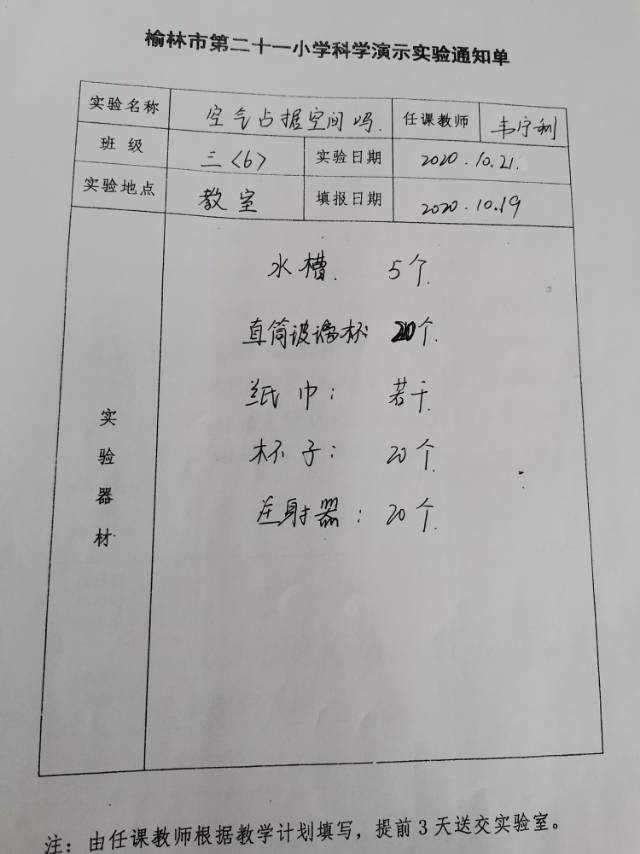 榆林市第二十一小学科学演示实验通知单
实验名称 空气占据空间吗. 任课教师 韦宁利
班级 三〈6〉 实验日期 2020.10.21.
实验地点 教室 填报日期 2020.10.19
实验器材
水槽. 5个.
直筒玻璃杯 20个.
纸巾: 若干.
杯子: 20个.
注射器: 20个.
注:由任课教师根据教学计划填写,提前3天送交实验室。